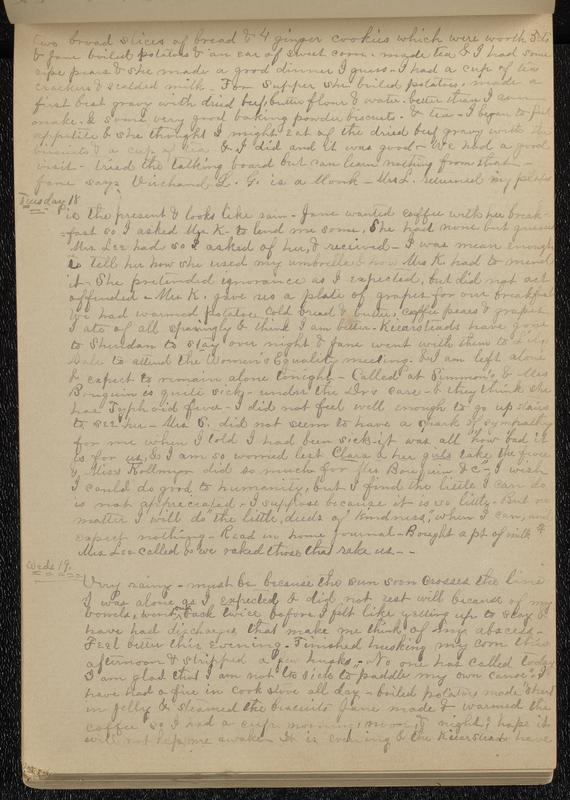 two broad slices of bread & 4 ginger cookies which were worth 3 cts
& Jane boiled potatoes & an ear of sweet corn. made tea & I had some
ripe pears & she made a good dinner I guess - I had a cup of tea
crackers & scalded milk - For supper she boiled potatoes, made a
first best gravy with dried beef, butter flour & water. better than I can
make. & some very good baking powder biscuits. & tea - I began to feel
appetite & she thought I might eat of the dried beef gravy with the
biscuits & a cup of tea & I did and it was good - We had a good
visit - tried the talking board but can learn nothing from that -
Jane says Richard L. G. is a Monk - Mrs L. returned my plates
Tuesday 18
is the present & looks like rain - Jane wanted coffee with her break-
-fast so I asked Mrs K. to lend me some, She had none but guessed
Mrs Lee had so I asked of her, & received - I was mean enough
to tell her how she used my umbrella & how Mrs K had to mend
it - She pretended ignorance as I expected, but did not act
offended - Mrs K. give us a plate of grapes for our breakfast
We had warmed potatoes cold bread & butter, coffee pears & grapes,
I ate of all sparingly & think I am better - Kiearsteads have gone
to Sheridan to stay over night & Jane went with them to
to attend the Women's Equality meeting. & I am left alone
& expect to remain alone tonight - Called at Simmons & Mrs
Bouguin is quite sick - under the Drs care - & they think she
has Typhoid fever - I did not feel well enough to go up stairs
to see her - Mrs S. did not seem to have a spark of sympathy
for me when I told I had been sick - it was all how bad it
is for us, & I am so worried lest Clara & her girls take the fever
& Miss Kollmyer did so much for Mrs Bouguin &c - I wish
I could do good to humanity, but I find the little I can do
is not appreciated - I suppose because it is so little - But no
matter I will do "the little deeds of kindness", when I can, and
expect nothing - Read in home journal - Bought a pt of milk
Mrs Lee called & we raked those that rake us - -
Weds 19.
Very rainy - must be because the sun soon crosses the line
I was alone as I expected & did not rest well because of my
bowels, went back twice before I felt like getting up to stay &
have had discharges that make me think of my abscess -
Feel better this evening - Finished husking my corn this
afternoon & stripped a few husks - No one has called today
I am glad that I am not too sick to paddle my own canoe. I
have had a fire in cook stove all day - boiled potatoes made
in jelly & steamed the biscuits Jane made & warmed the
coffee so I had a cup morning, noon, & night; hope it
will not keep me awake - It is evening & the Kiersteads have